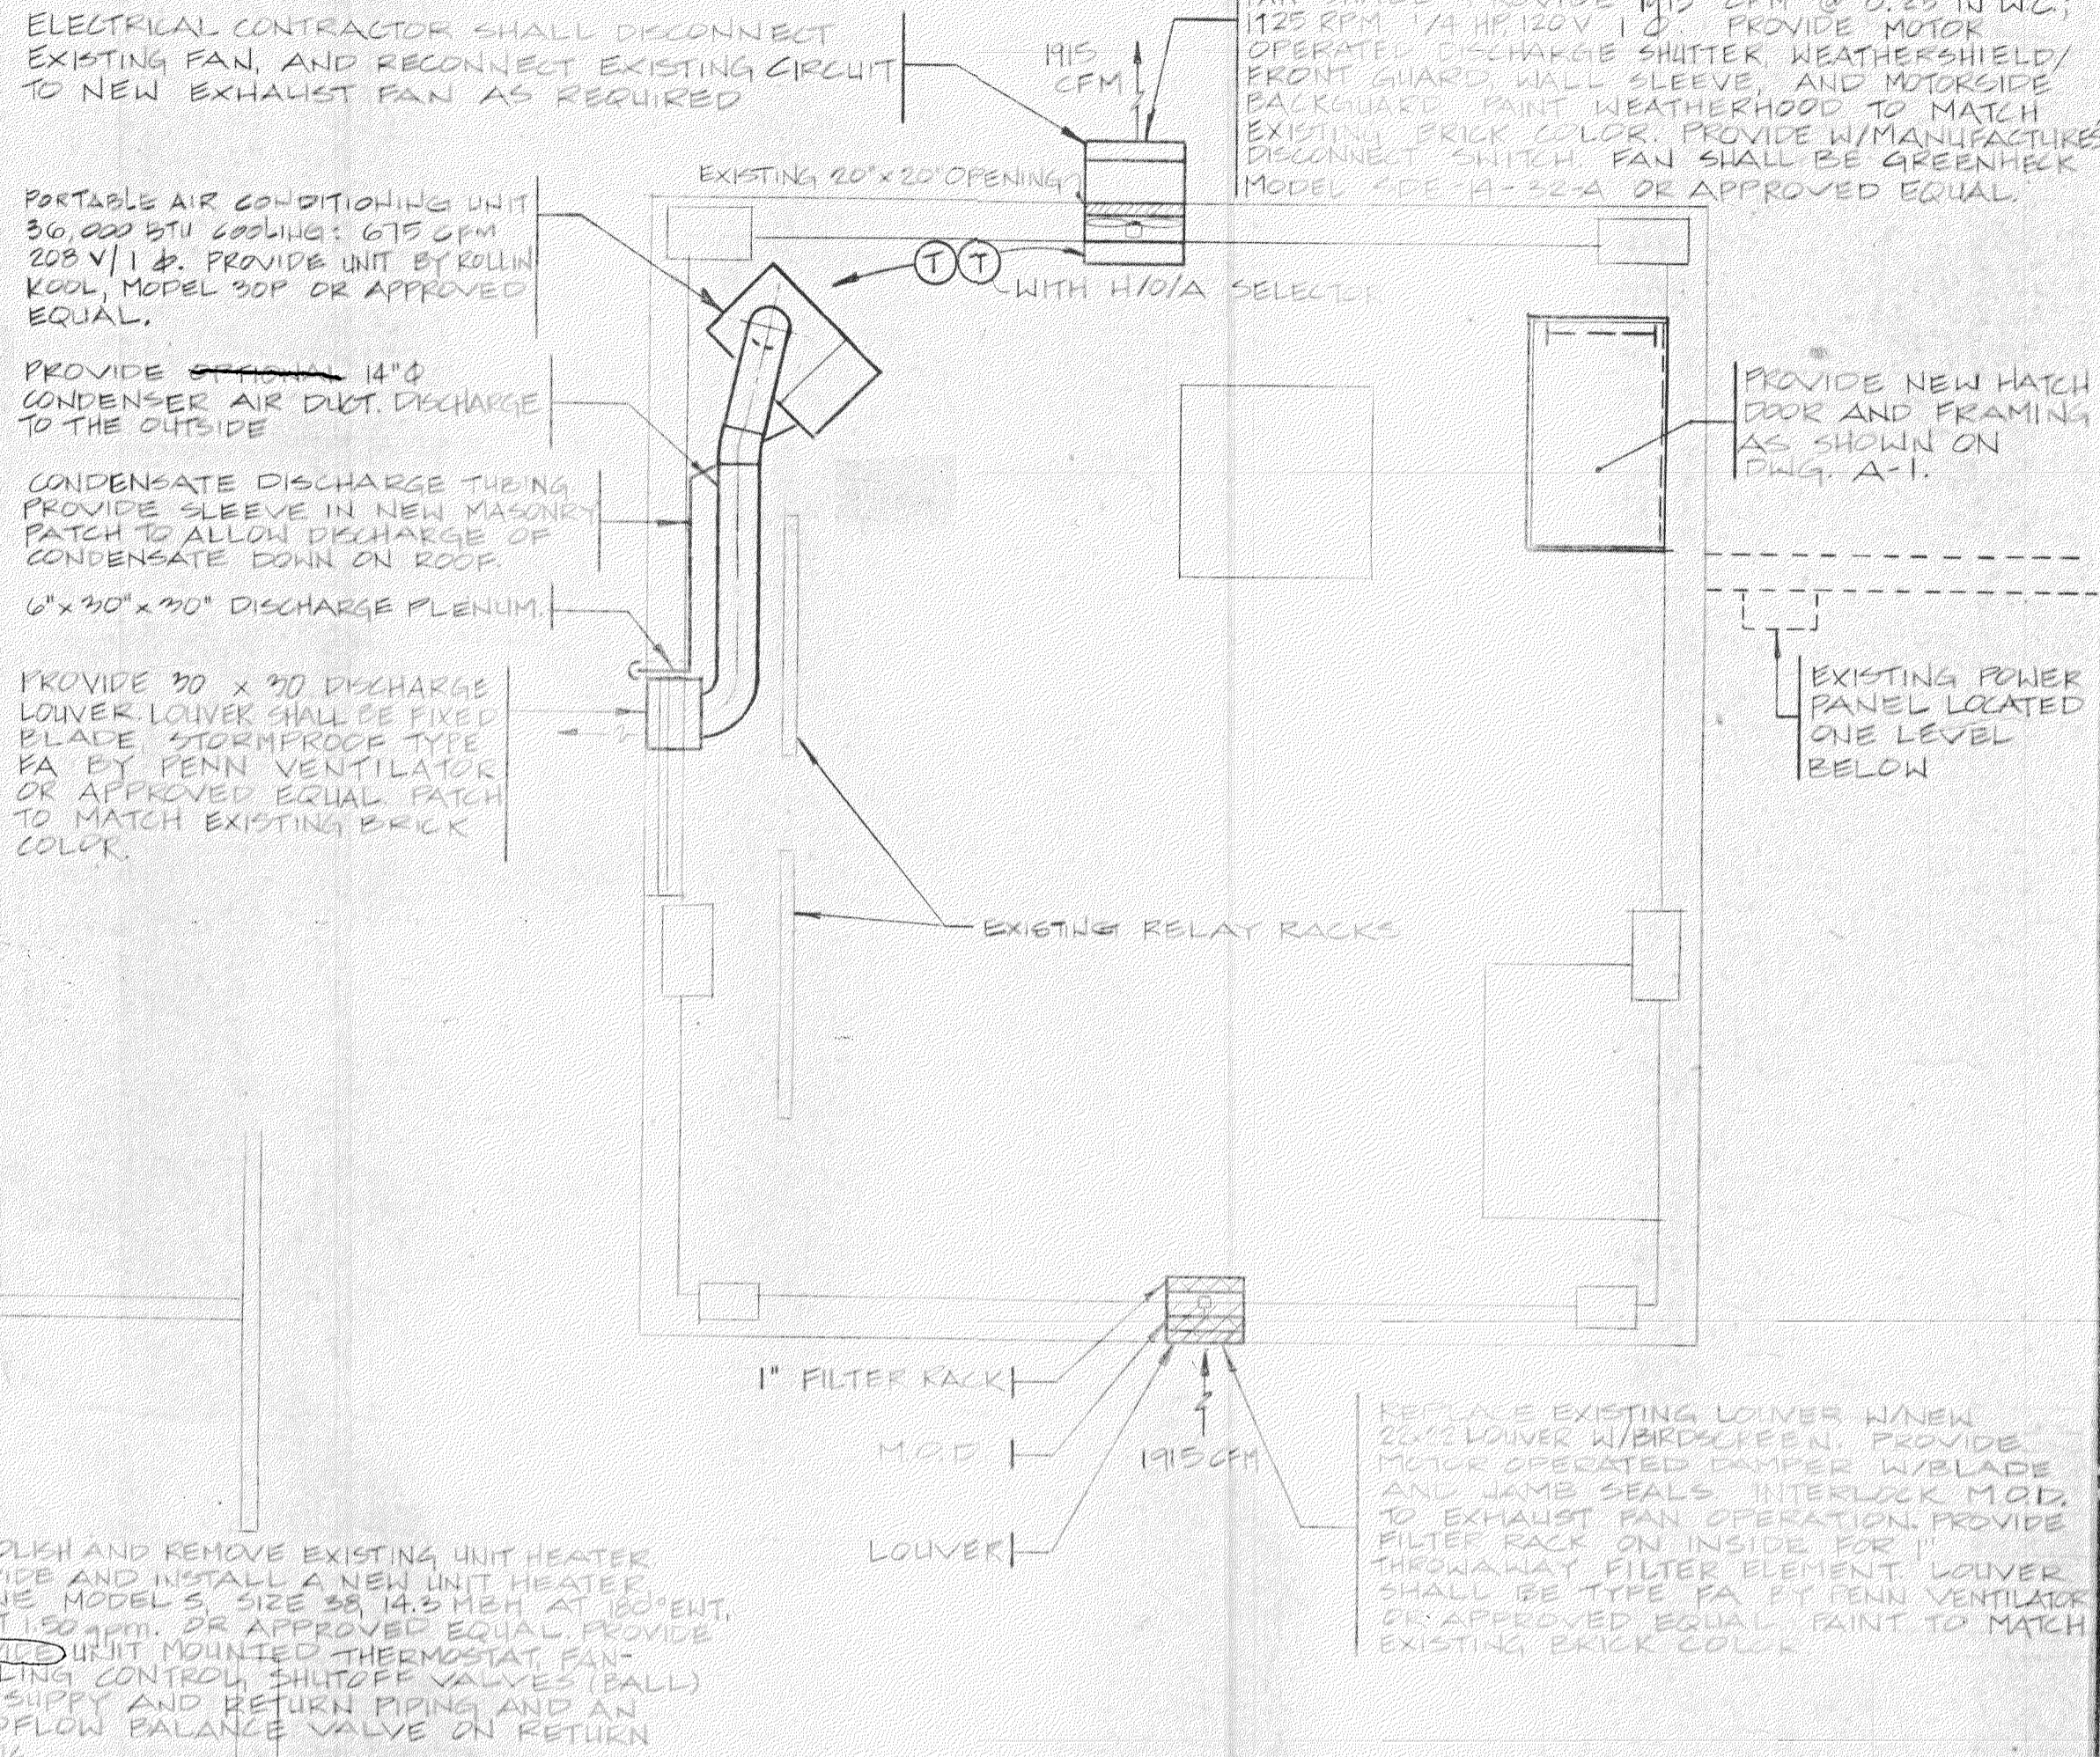 ELECTRICAL CONTRACTOR SHALL DISCONNECT
EXISTING FAN, AND RECONNECT EXISTING CIRCUIT
TO NEW EXHAUST FAN AS REQUIRED
1915
CFM
1125 RPM 1/4 HP, 120 V 1 Ø. PROVIDE MOTOR
OPERATED DISCHARGE SHUTTER, WEATHERSHIELD/
FRONT GUARD, WALL SLEEVE, AND MOTORSIDE
BACKGUARD. PAINT WEATHERHOOD TO MATCH
EXISTING BRICK COLOR. PROVIDE W/MANUFACTURES
DISCONNECT SWITCH. FAN SHALL BE GREENHECK
MODEL SDE-14-32-A OR APPROVED EQUAL.
EXISTING 20"x20" OPENING
PORTABLE AIR CONDITIONING UNIT
36,000 BTU COOLING: 675 CFM
208 V/1 Ø. PROVIDE UNIT BY ROLLIN
KOOL, MODEL 30P OR APPROVED
EQUAL.
T T
WITH H/O/A SELECTOR
PROVIDE 14"Ø
CONDENSER AIR DUCT. DISCHARGE
TO THE OUTSIDE
PROVIDE NEW HATCH
DOOR AND FRAMING
AS SHOWN ON
DWG. A-1.
CONDENSATE DISCHARGE TUBING
PROVIDE SLEEVE IN NEW MASONRY
PATCH TO ALLOW DISCHARGE OF
CONDENSATE DOWN ON ROOF.
6"x30"x30" DISCHARGE PLENUM.
PROVIDE 30 x 30 DISCHARGE
LOUVER. LOUVER SHALL BE FIXED
BLADE, STORMPROOF TYPE
FA BY PENN VENTILATOR
OR APPROVED EQUAL. PATCH
TO MATCH EXISTING BRICK
COLOR.
EXISTING POWER
PANEL LOCATED
ONE LEVEL
BELOW
EXISTING RELAY RACKS
1" FILTER RACK
M.O.D
1915 CFM
LOUVER
REPLACE EXISTING LOUVER W/NEW
22x22 LOUVER W/BIRDSCREEN. PROVIDE
MOTOR OPERATED DAMPER W/BLADE
AND JAMB SEALS. INTERLOCK M.O.D.
TO EXHAUST FAN OPERATION. PROVIDE
FILTER RACK ON INSIDE FOR 1"
THROWAWAY FILTER ELEMENT. LOUVER
SHALL BE TYPE FA BY PENN VENTILATOR
OR APPROVED EQUAL. PAINT TO MATCH
EXISTING BRICK COLOR
OLISH AND REMOVE EXISTING UNIT HEATER.
IDE AND INSTALL A NEW UNIT HEATER
NE MODEL S, SIZE 38, 14.3 MBH AT 180° EWT,
T 1.50 gpm. OR APPROVED EQUAL. PROVIDE
IDE UNIT MOUNTED THERMOSTAT, FAN-
LING CONTROL, SHUTOFF VALVES (BALL)
SUPPY AND RETURN PIPING AND AN
OFLOW BALANCE VALVE ON RETURN